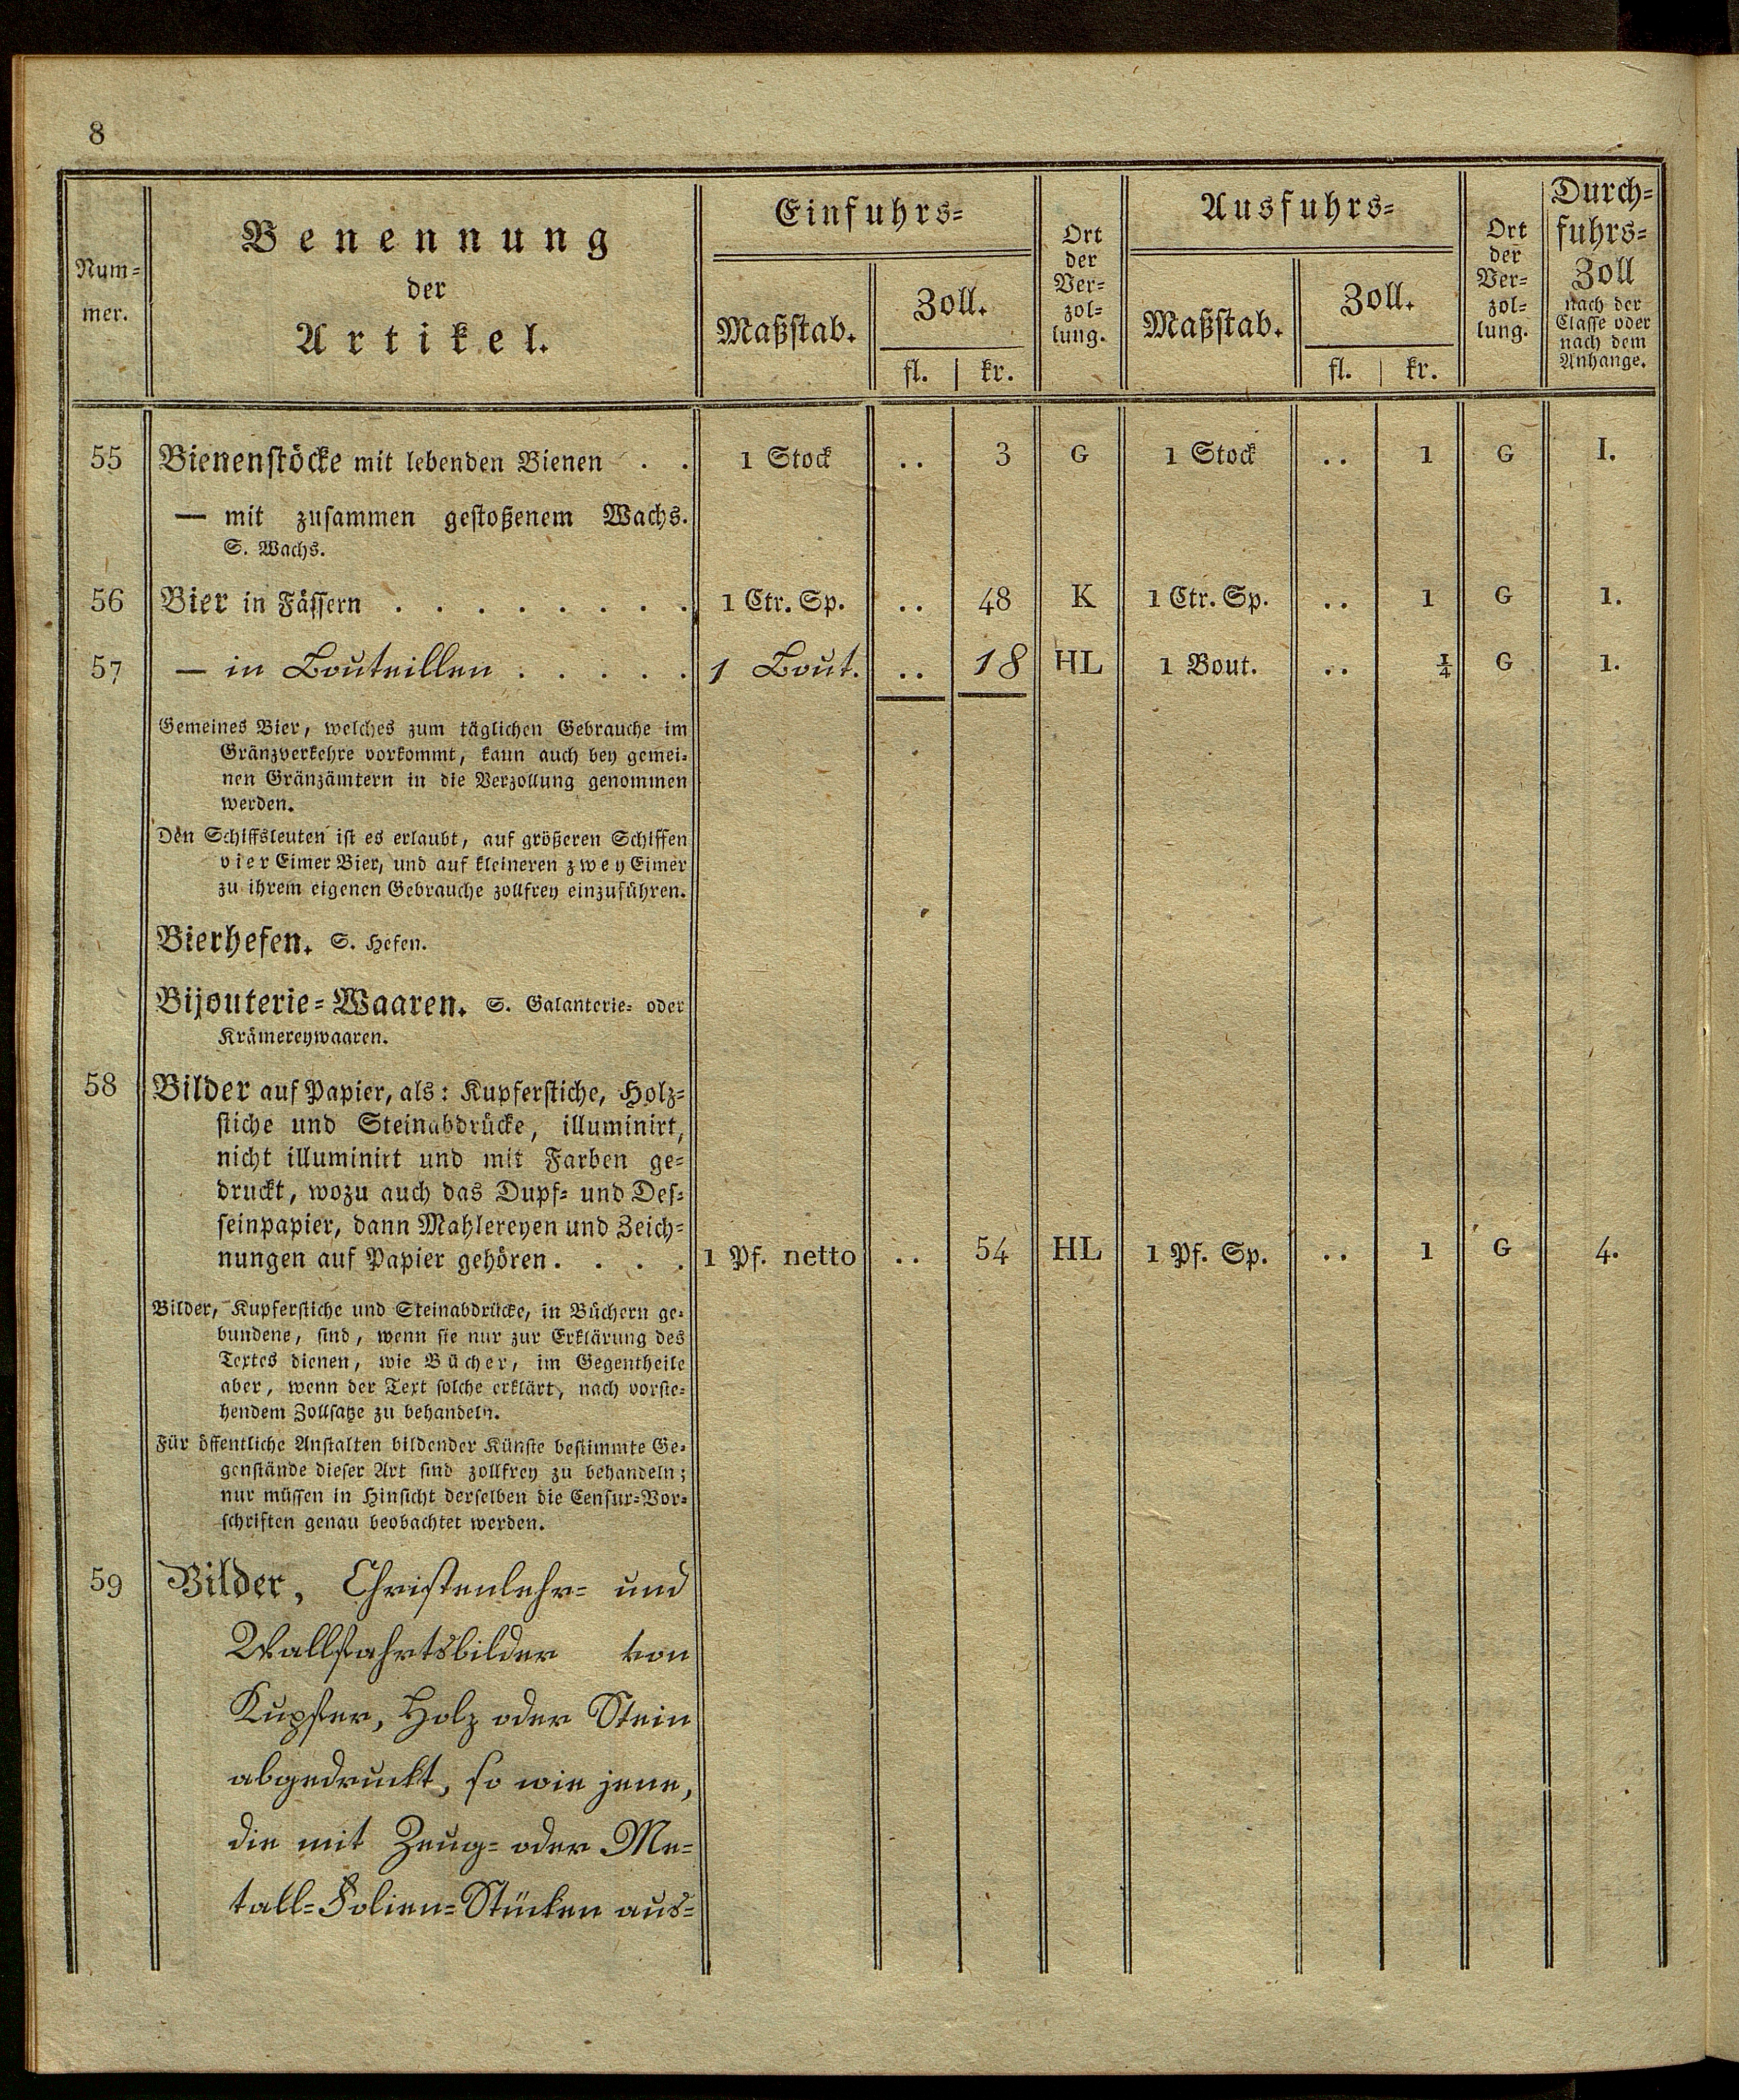 8
Num=
mer.
Benennung
der
Artikel.
Einfuhrs=
Maßstab.
Zoll.
fl. | kr.
Ort
der
Ver=
zol=
lung.
Ausfuhrs=
Maßstab.
Zoll.
fl. | kr.
Ort
der
Ver=
zol=
lung.
Durch=
fuhrs=
Zoll
nach der
Classe oder
nach dem
Anhange.
55 Bienenstöcke mit lebenden Bienen . . 1 Stock .. 3 G 1 Stock .. 1 G I.
— mit zusammen gestoßenem Wachs.
S. Wachs.
56 Bier in Fässern . . . . . . . . 1 Ctr. Sp. .. 48 K 1 Ctr. Sp. .. 1 G 1.
57 — in Bouteillen . . . . . 1 Bout. .. 18 HL 1 Bout. .. ¼ G 1.
Gemeines Bier, welches zum täglichen Gebrauche im
Gränzverkehre vorkommt, kann auch bey gemei=
nen Gränzämtern in die Verzollung genommen
werden.
Den Schiffsleuten ist es erlaubt, auf größeren Schiffen
vier Eimer Bier, und auf kleineren zwey Eimer
zu ihrem eigenen Gebrauche zollfrey einzuführen.
Bierhefen. S. Hefen.
Bijouterie=Waaren. S. Galanterie= oder
Krämereywaaren.
58 Bilder auf Papier, als: Kupferstiche, Holz=
stiche und Steinabdrücke, illuminirt,
nicht illuminirt und mit Farben ge=
druckt, wozu auch das Dupf= und Des=
seinpapier, dann Mahlereyen und Zeich=
nungen auf Papier gehören. . . . 1 Pf. netto .. 54 HL 1 Pf. Sp. .. 1 G 4.
Bilder, Kupferstiche und Steinabdrücke, in Büchern ge=
bundene, sind, wenn sie nur zur Erklärung des
Textes dienen, wie Bücher, im Gegentheile
aber, wenn der Text solche erklärt, nach vorste=
hendem Zollsatze zu behandeln.
Für öffentliche Anstalten bildender Künste bestimmte Ge=
genstände dieser Art sind zollfrey zu behandeln;
nur müssen in Hinsicht derselben die Censur=Vor=
schriften genau beobachtet werden.
59 Bilder, Christenlehr= und
Wallfahrtsbilder von
Kupfer, Holz oder Stein
abgedruckt, so wie jene,
die mit Zeug= oder Me=
tall=Folien=Stücken aus=